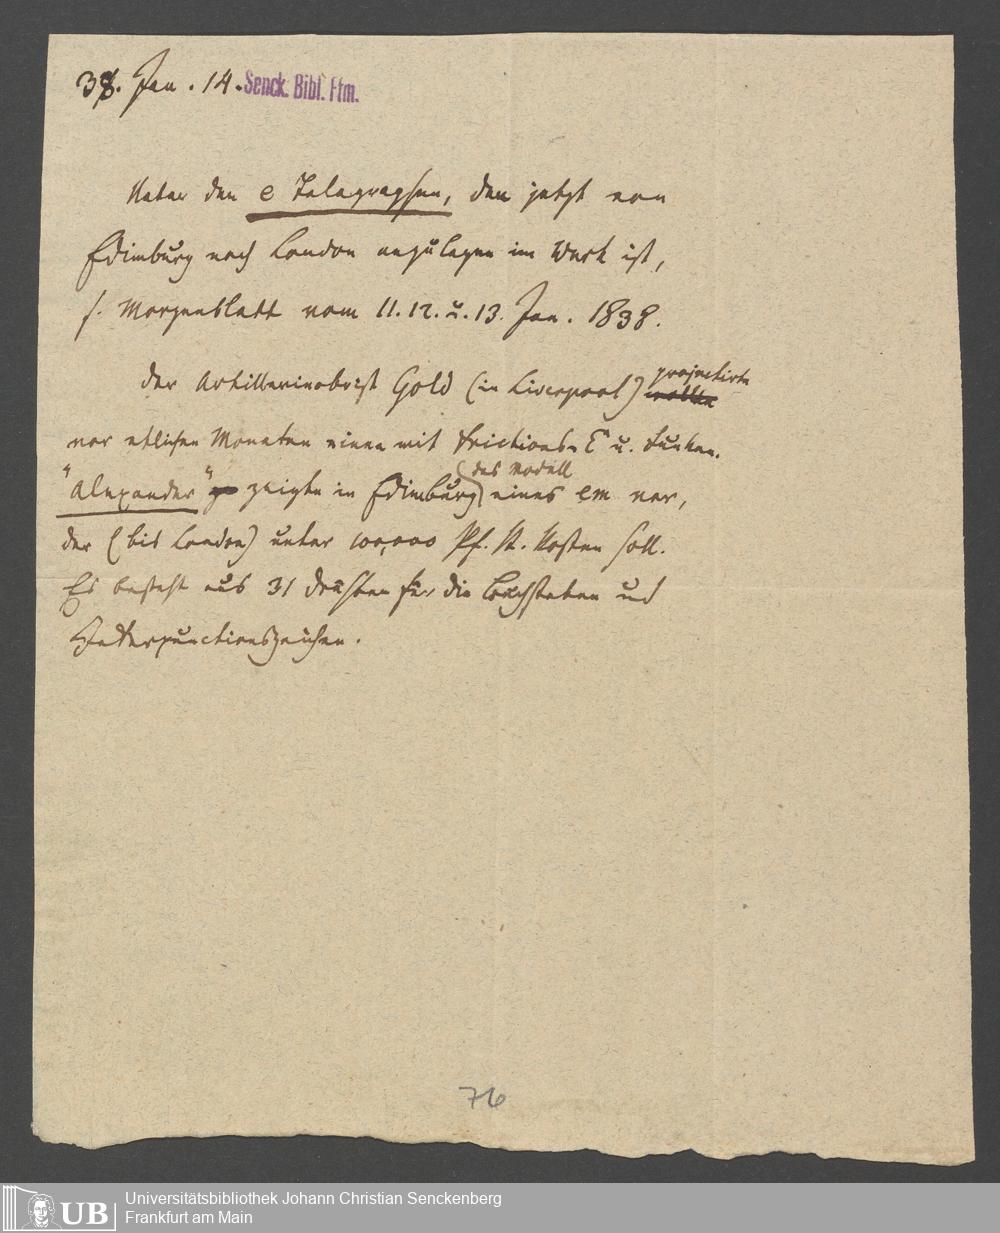 38. Jan. 14. Senck. Bibl. Ffm.
Ueber den e Telegraphen, den jetzt von
Edimburg nach London anzulegen im Werk ist,
s. Morgenblatt vom 11. 12. u. 13. Jan. 1838.
Der Artillerieobrist Gold (in Liverpool) projectirte
vor etlichen Monaten einen mit Frictions-E u. Funken.
"Alexander" zeigte in Edimburg das Modell eines em vor,
der (bis London) unter 100,000 Pf. St. kosten soll.
Es besteht aus 31 Dräthen für die Buchstaben und
Interpunctionszeichen.
76
UB
Universitätsbibliothek Johann Christian Senckenberg
Frankfurt am Main